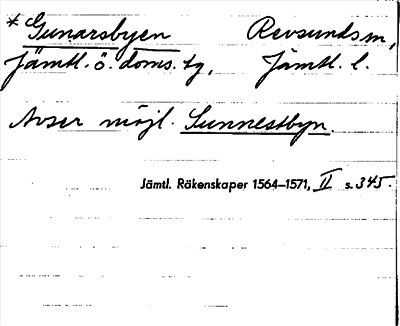 *Gunarsbyen Revsunds sn,
Jämtl. ö. doms. tg, Jämtl. l.
Avser möjl. Sunnestbyn.
Jämtl. Räkenskaper 1564–1571, II s. 345.